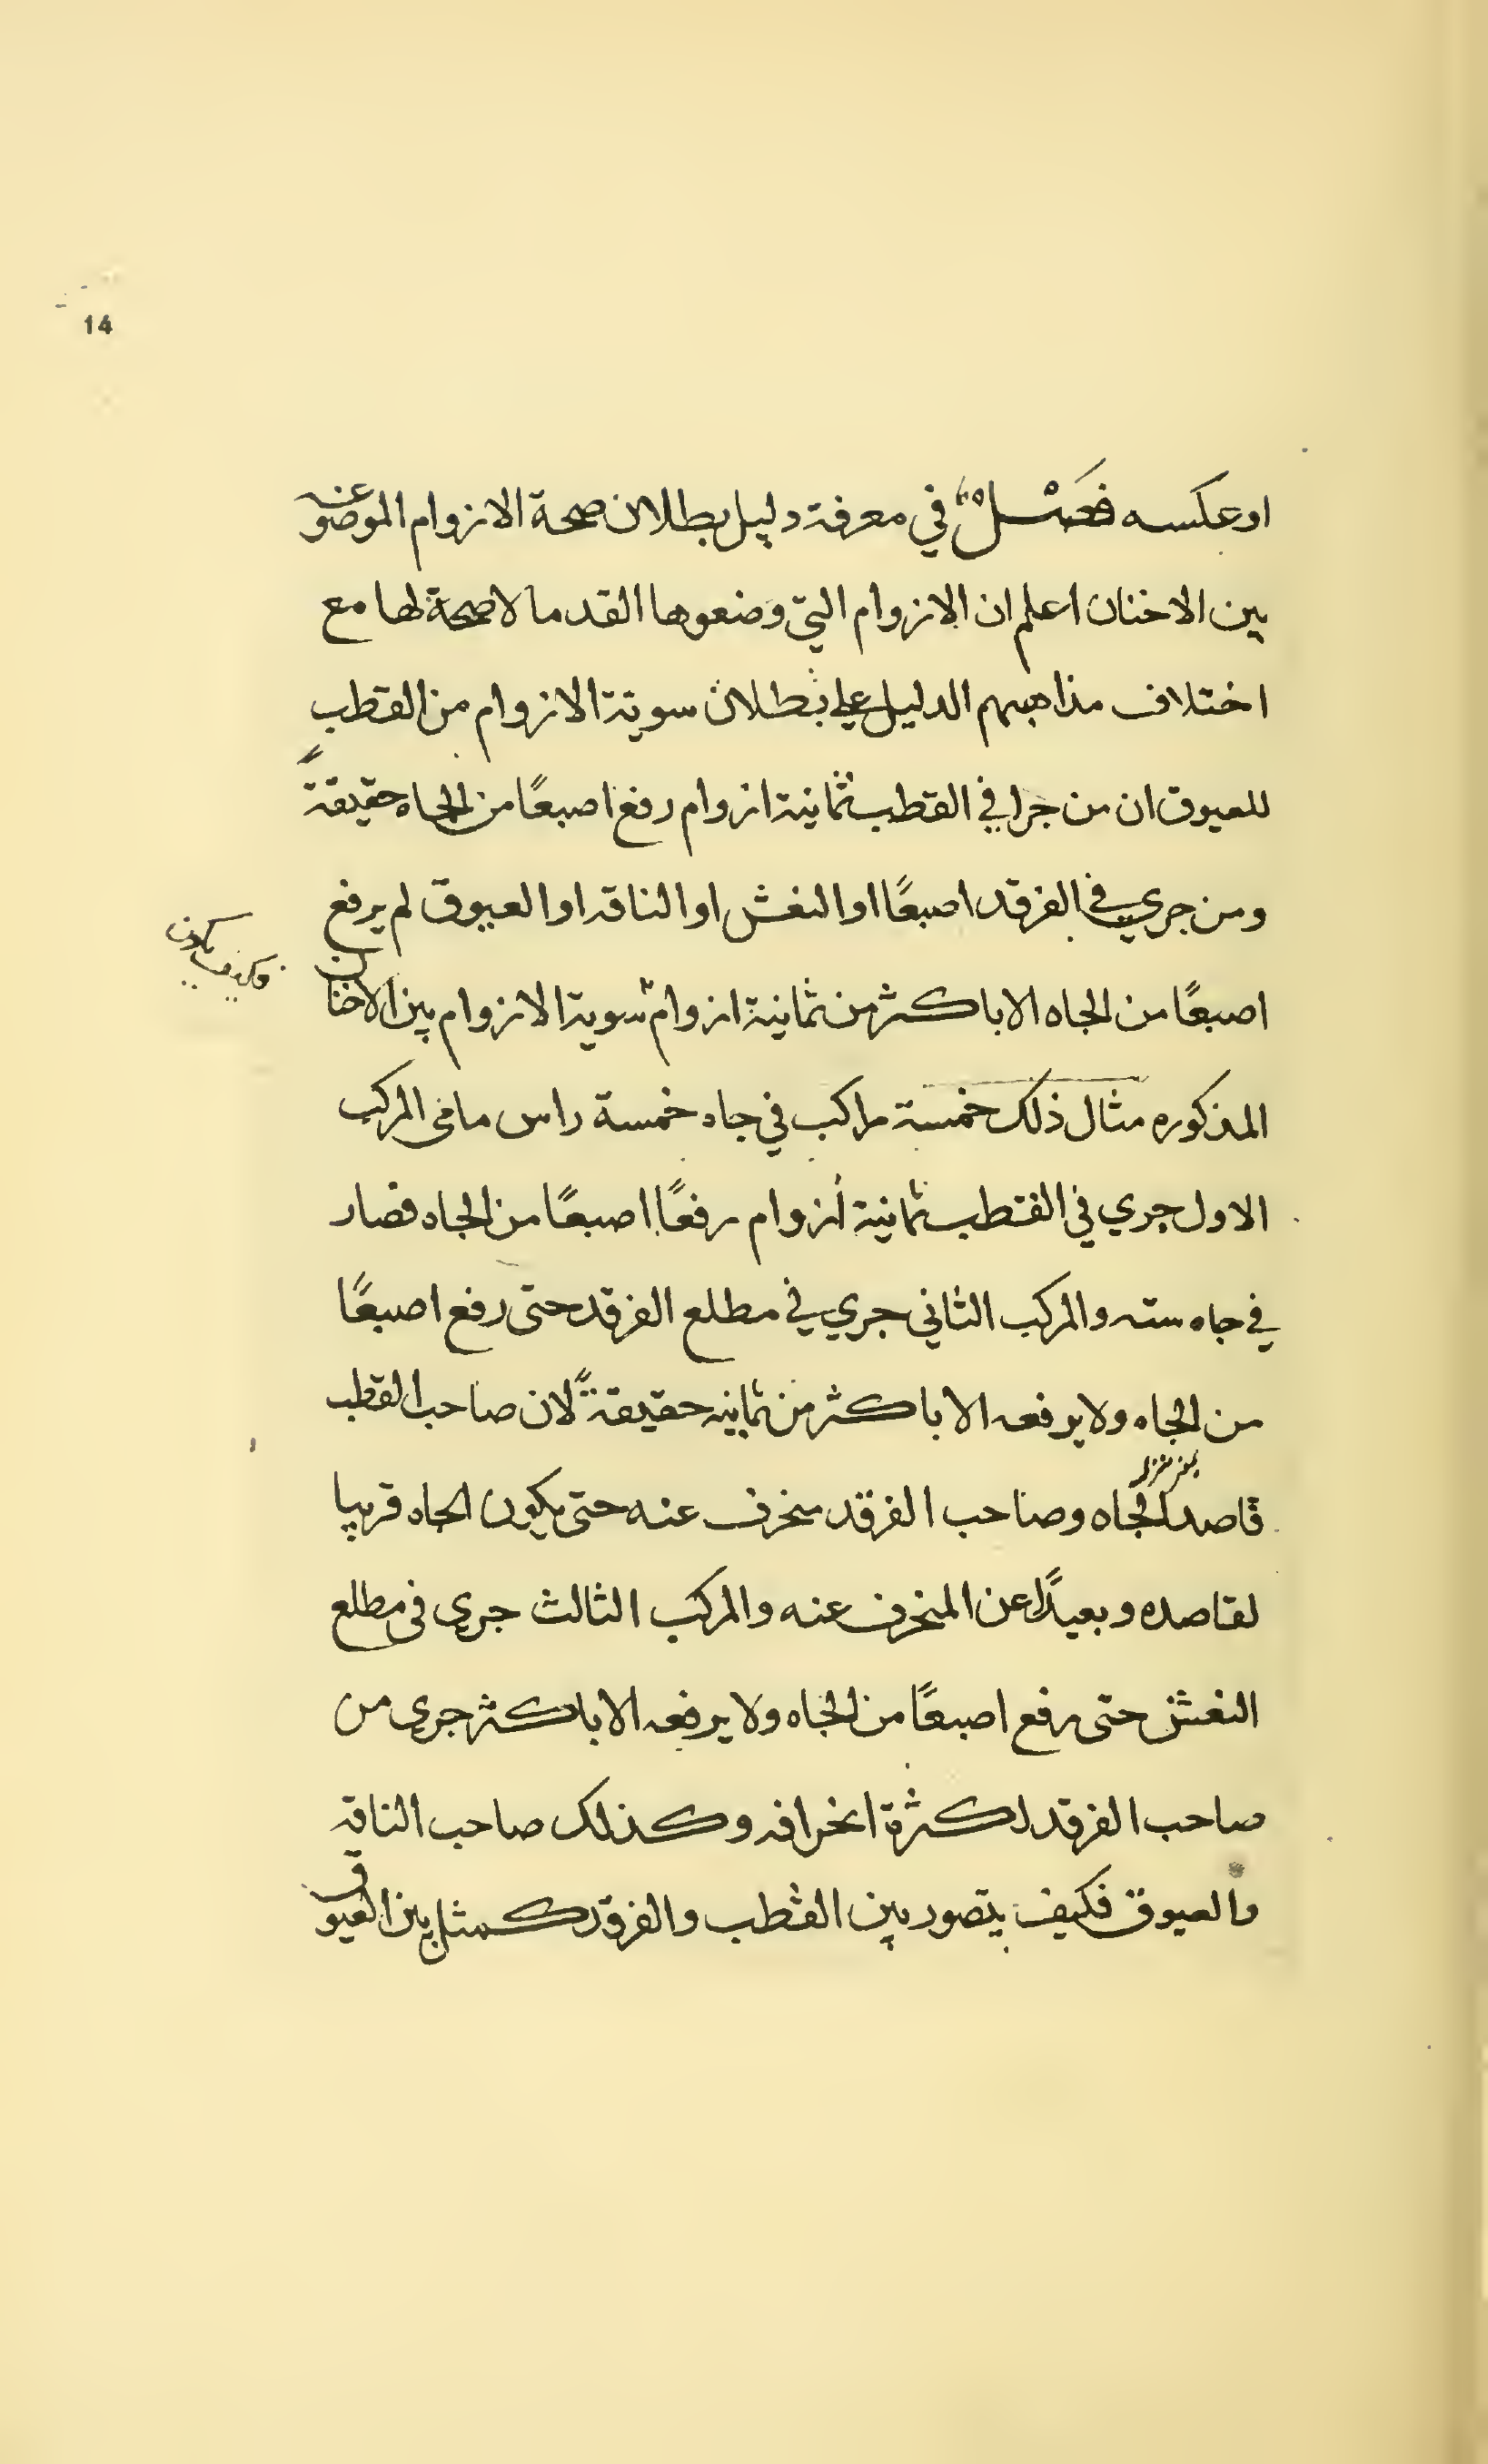 14
او عكسه فصل في معرفة دليل بطلان صحة الازوام الموضوعة
بين الاخنان اعلم ان الازوام التي وضعوها القدما لا صحة لها مع
اختلاف مذاهبهم الدليل علي بطلان سوية الازوام من القطب
للعيوق ان من جرا في القطب ثمانية ازوام رفع اصبعًا من الجاه حقيقةً
ومن جري في الفرقد اصبعًا او النعش او الناقه او العيوق لم يرفع
اصبعًا من الجاه الا باكثر من ثمانية ازوام سوية الازوام بين الاخنان
فكيف يكون
المذكوره مثال ذلك خمسة مراكب في جاه خمسة راس مامي المركب
الاول جري في القطب ثمانية ازوام رفعًا اصبعًا من الجاه فصار
في جاه سته والمركب الثاني جري في مطلع الفرقد حتى رفع اصبعًا
من الجاه ولا يرفعه الا باكثر من ثمانيه حقيقةً لان صاحب القطب
قاصد الجاه وصاحب الفرقد منحرف عنه حتى يكون الجاه قريبا
لقاصده وبعيدًا عن المنحرف عنه والمركب الثالث جري في مطلع
النعش حتى رفع اصبعًا من الجاه ولا يرفعه الا باكثر جري من
صاحب الفرقد لكثرة انحرافه وكذلك صاحب الناقه
والعيوق فكيف يتصور بين القطب والفرقد كمثل بين العيوق